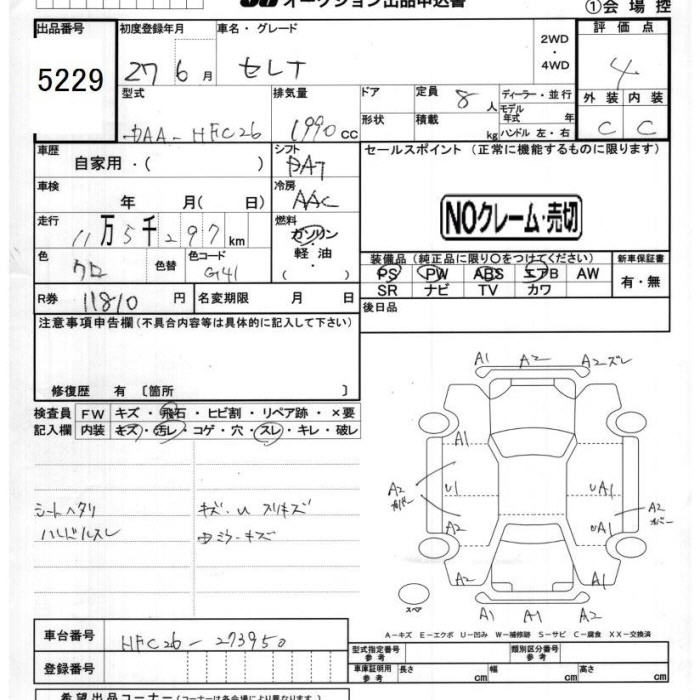 オークション出品申込書 ①会場控
出品番号 初度登録年月 車名・グレード 評価点
5229 27 6月 セレナ 2WD・4WD 4
型式 排気量 ドア 定員 8人 ディーラー・並行 外装 内装
DAA-HFC26 1990cc 形状 積載 kg モデル年式 年 C C
ハンドル 左・右
車歴 シフト セールスポイント (正常に機能するものに限ります)
自家用・( ) DAT
車検 年 月(日) 冷房 AAC
NOクレーム・売切
走行 11万5千297km 燃料 ガソリン・軽油・( )
色 クロ 色替 色コード G41
装備品 (純正品に限り○をつけてください) 新車保証書
PS PW ABS エアB AW 有・無
SR ナビ TV カワ
R券 11810円 名変期限 月 日 後日品
注意事項申告欄 (不具合内容等は具体的に記入して下さい)
修復歴 有 〔箇所 〕
検査員 FW キズ・飛石・ヒビ割・リペア跡・×要
記入欄 内装 キズ・汚レ・コゲ・穴・スレ・キレ・破レ
シートヘタリ キズ・U スリキズ
ハンドルスレ
A1 A2 A2ズレ
A1
U1 UA1
A2 カバー A2 カバー
A2 UA1
A2 A2
スペア A1 A1 A2
A-キズ E-エクボ U-凹み W-補修跡 S-サビ C-腐食 XX-交換済
車台番号 HFC26-273950
型式指定番号 参考 類別区分番号 参考
登録番号 車庫証明用 参考 長さ cm 幅 cm 高さ cm
希望出品コーナー (コーナーは各会場により異なります。)